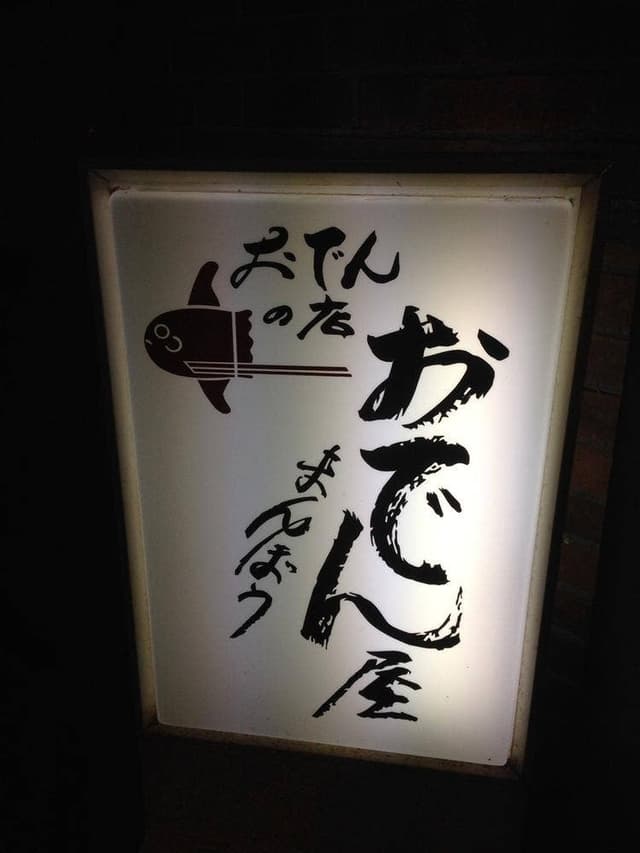 おでん
の店
おでん屋
まんぼう